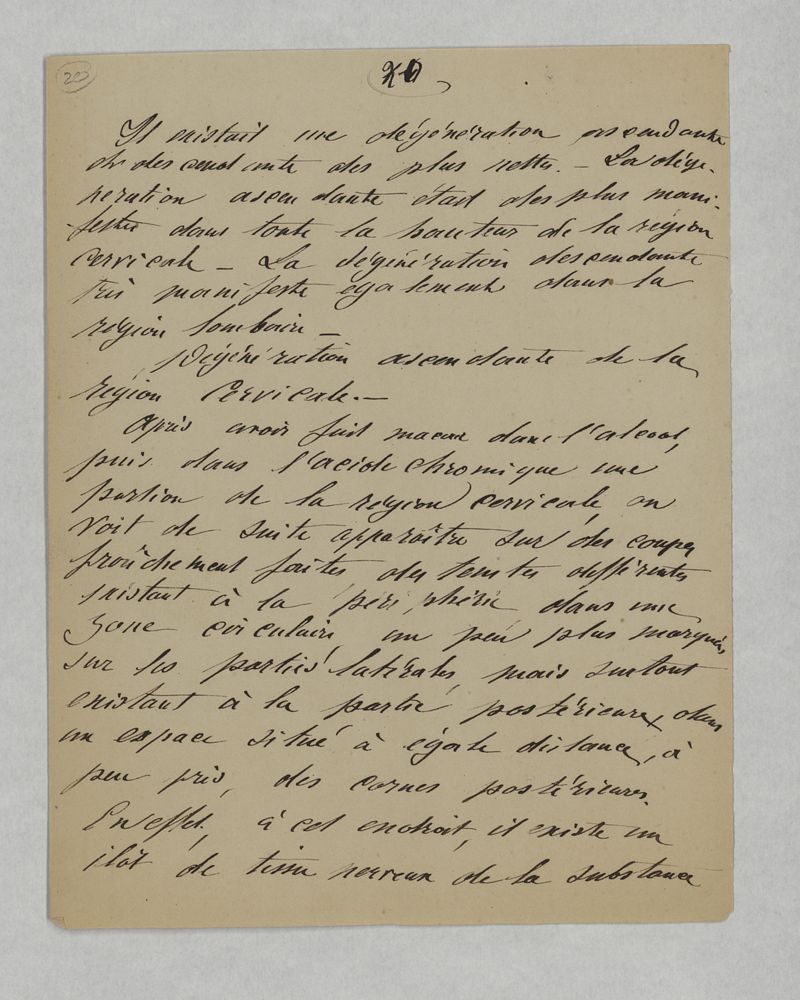 20
20
Il existait une dégénération ascendante
et descendante des plus nettes. – La dégé-
nération ascendante était des plus mani-
feste dans toute la hauteur de la région
cervicale – La dégénération descendante
très manifeste également dans la
région lombaire –
Dégénération ascendante de la
région Cervicale. –
Après avoir fait macérer dans l'alcool,
puis dans l'acide chromique une
portion de la région cervicale, on
voit de suite apparaître sur des coupes
fraîchement faites des teintes différentes
existant à la périphérie dans une
zone circulaire, un peu plus marquées
sur les parties latérales, mais surtout
existant à la partie postérieure, dans
un espace situé à égale distance, à
peu près, des cornes postérieures.
En effet, à cet endroit, il existe un
ilôt de tissu nerveux de la substance